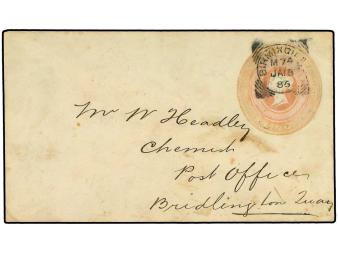 BIRMINGH
M 74
JA 18
86
Mr W Headley
Chemist
Post Office
Bridlington Quay